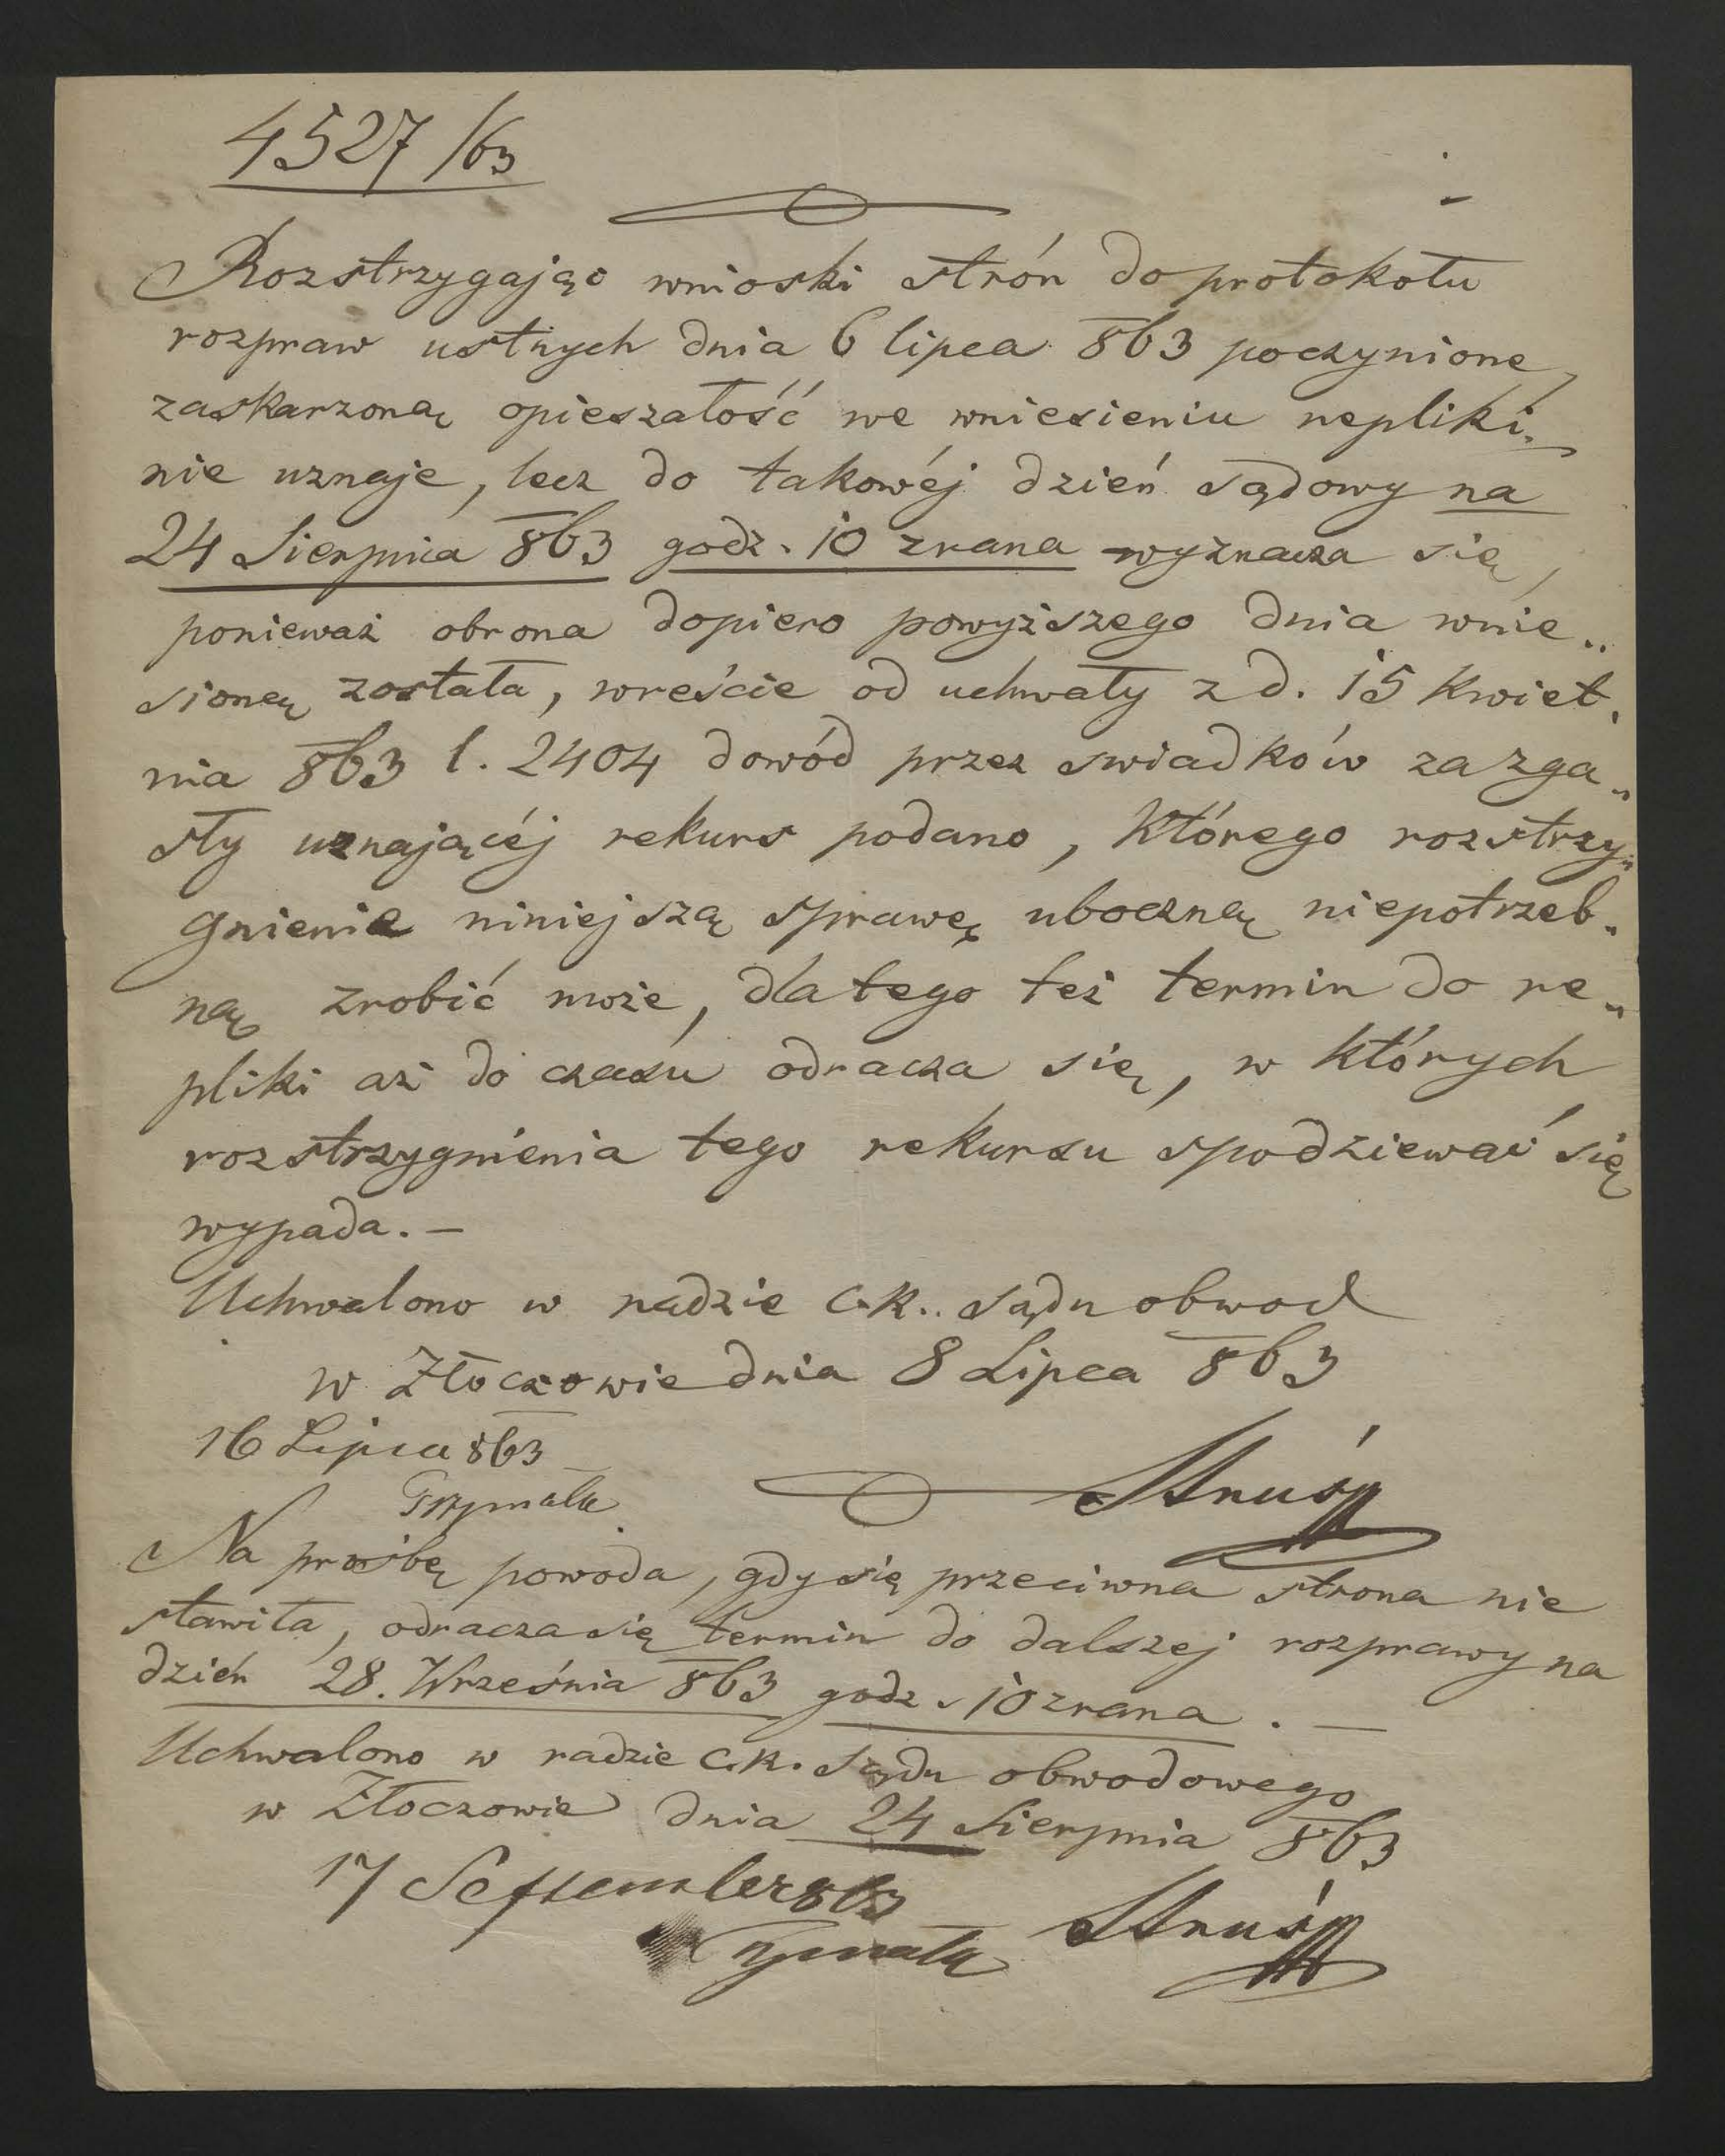 4527/63
Rozstrzygając wnioski strón do protokołu
rozpraw ustnych dnia 6 lipca 863 poczynione,
zaskarzoną opieszałość we wniesieniu repliki
nie uznaje, lecz do takowéj dzień sądowy na
24 Sierpnia 863 godz. 10 zrana wyznacza się,
ponieważ obrona dopiero powyższego dnia wnie„
sioną została, wreście od uchwały z d. 15 Kwiet„
nia 863 l. 2404 dowód przez swiadków za zga„
sły uznającéj rekurs podano, którego rozstrzy„
gnienie niniejszą sprawę uboczną niepotrzeb„
ną zrobić może, dla tego też termin do re„
pliki aż do czasu odracza się, w których
rozstrzygnienia tego rekursu spodziewać się
wypada.—
Uchwalono w radzie c.k. sądu obwod
w Złoczowie dnia 8 Lipca 863
16 Lipca 863
Grzymała
Struś
Na prośbę powoda, gdy się przeciwna strona nie
stawiła, odracza się termin do dalszej rozprawy na
dzień 28. Września 863 godz. 10 zrana.—
Uchwalono w radzie c.k. Sądu obwodowego
w Złoczowie dnia 24 Sierpnia 863
17 September 863
Struś